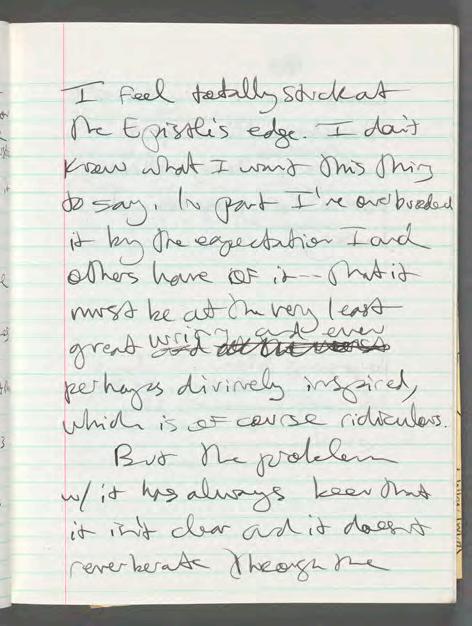 I feel totally stuck at
the Epistle's edge. I don't
know what I want this thing
to say. In part I've overburdened
it by the expectation I and
others have of it -- that it
must be at the very least
great writing and even
perhaps divinely inspired,
which is of course ridiculous.
But the problem
w/ it has always been that
it isn't clear and it doesn't
reverberate through the